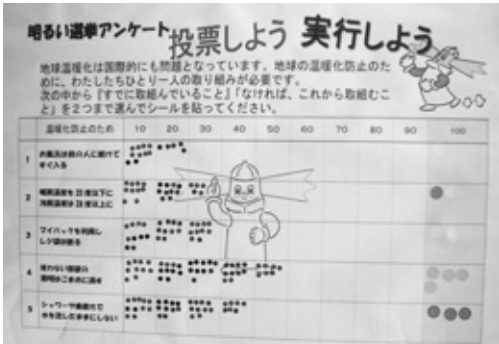 明るい選挙アンケート
投票しよう 実行しよう
地球温暖化は国際的にも問題となっています。地球の温暖化防止のた
めに、わたしたちひとり一人の取り組みが必要です。
次の中から「すでに取組んでいること」「なければ、これから取組むこ
と」を2つまで選んでシールを貼ってください。
温暖化防止のため 10 20 30 40 50 60 70 80 90 100
1 お風呂は前の人に続けて
すぐ入る
2 暖房温度を20度以下に
冷房温度は28度以上に
3 マイバックを利用し
レジ袋は断る
4 使わない部屋の
照明はこまめに消す
5 シャワーや歯磨きで
水を流したままにしない